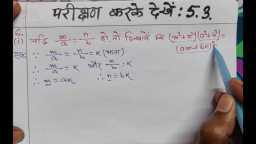 परीक्षण करके देखें : 5.3
(i) यदि m/a = n/b हो तो दिखायें कि (m²+n²)(a²+b²) =
(am+bn)²
∴ m/a = n/b = k (माना)
∴ m/a = k और n/b = k
∴ m = ak ∴ n = bk